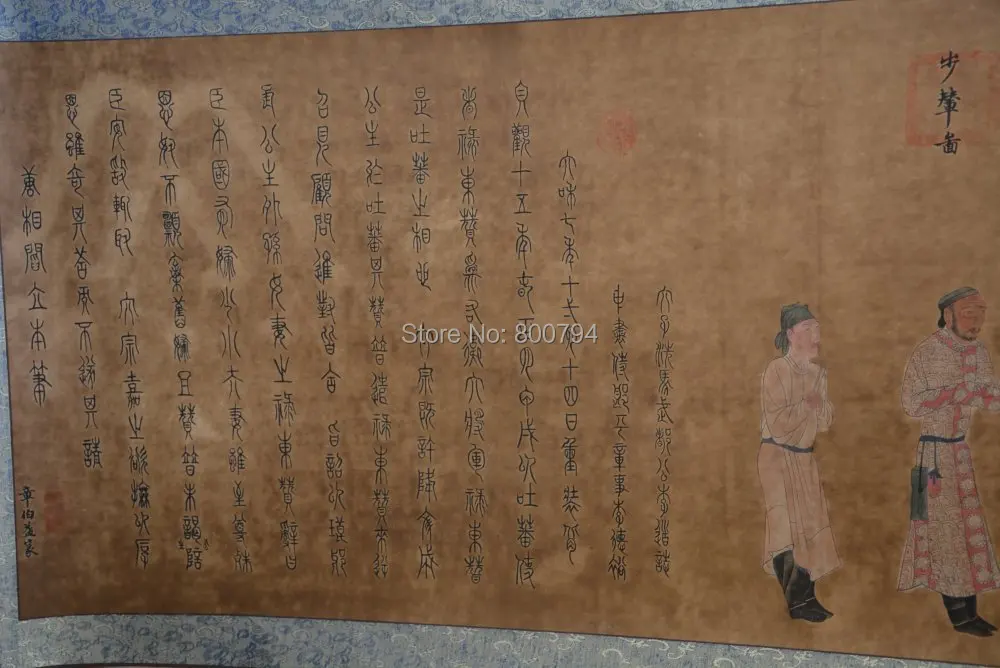 步輦啚
太子洗馬武都公李道誌
中書侍郎平章事李德裕
大和七年十一月十四日重裝背
貞觀十五年春正月甲戌以吐蕃使
者祿東贊爲右衛大將軍祿東贊
是吐蕃之相也 太宗既許降文成
公主於吐蕃其贊普遣祿東贊來逆
召見顧問進對皆合 旨詔以琅
長公主外孫女妻之祿東贊辭曰
臣本國有婦少小夫妻雖至尊殊
恩奴不願棄舊婦且贊普未謁公主陪
臣安敢輒取 太宗嘉之欲撫以厚
恩雖奇其答而不遂其請
唐相閻立本筆
章伯益篆
Store No: 800794